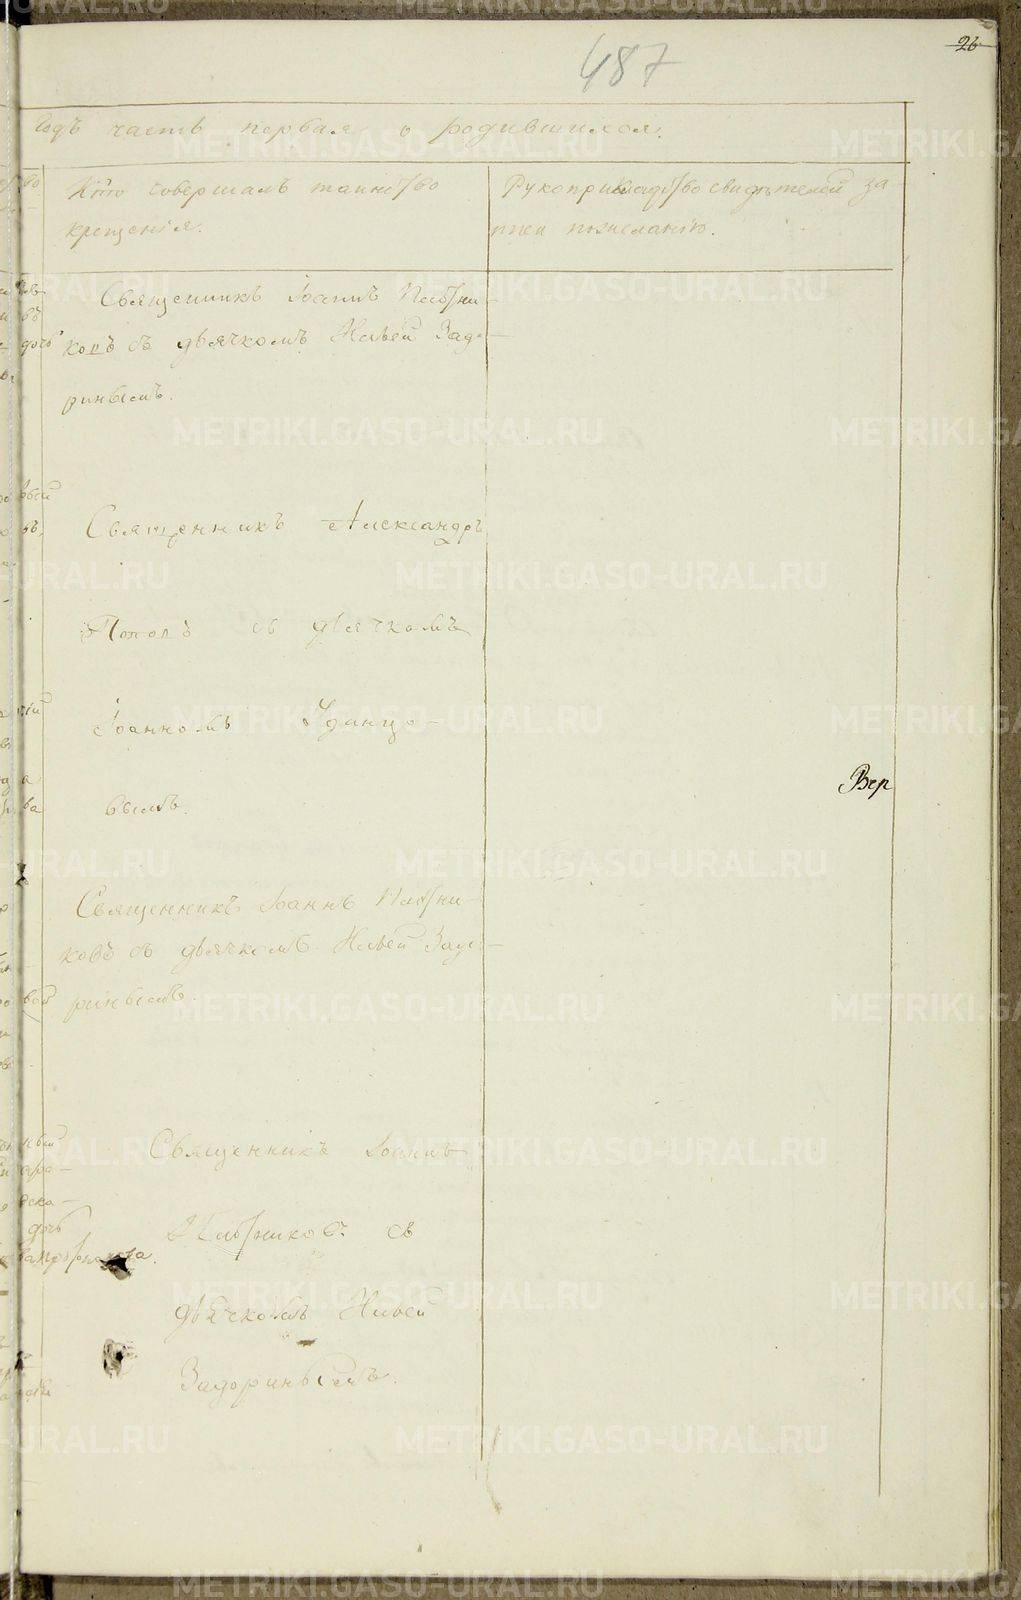 487
26
годъ часть первая о родившихся.
Кто совершалъ таинство
крещенія.
Рукоприкладство свидѣтелей за-
писи по желанію.
Священникъ Іоаннъ Плотни-
ковъ съ дьячкомъ Ильей Задо-
ринымъ.
Священникъ Александръ
Поповъ съ дьячкомъ
Іоанномъ Удинцо-
вымъ.
Вер
Священникъ Іоаннъ Плотни-
ковъ съ дьячкомъ Ильей Задо-
ринымъ.
Священникъ Іоаннъ
Плотниковъ съ
дьячкомъ Ильей
Задоринымъ.
METRIKI.GASO-URAL.RU